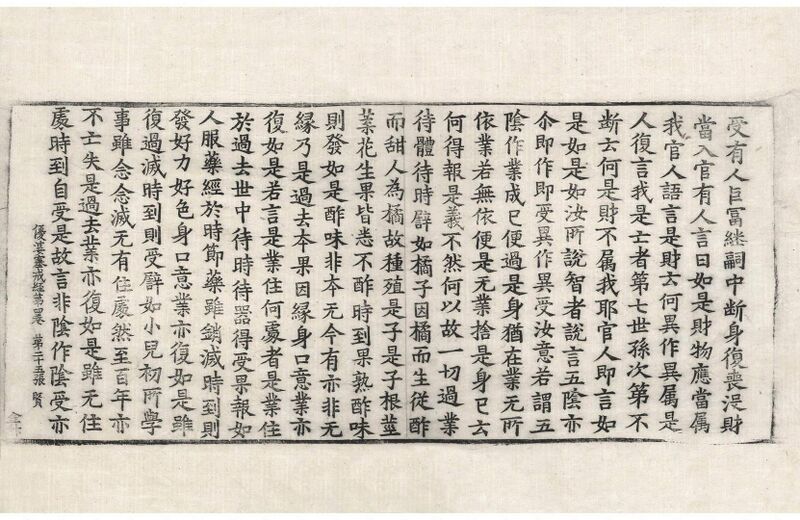 受有人巨富継嗣中断身復喪没財
當入官有人言曰如是財物應當属
我官人語言是財云何異作異属是
人復言我是亡者第七世孫次第不
断云何是財不属我耶官人即言如
是如是如汝所說智者說言五陰亦
尒即作即受異作異受汝意若謂五
陰作業成已便過是身猶在業无所
依業若無依便是无業捨是身已云
何得報是義不然何以故一切過業
待體待時譬如橘子因橘而生従酢
而甜人為橘故種殖是子是子根莖
葉花生果皆悉不酢時到果熟酢味
則發如是酢味非本无今有亦非无
縁乃是過去本果因縁身口意業亦
復如是若言是業住何處者是業住
於過去世中待時待器得受果報如
人服藥經於時節藥雖銷滅時到則
發好力好色身口意業亦復如是雖
復過滅時到則受譬如小兒初所學
事雖念念滅无有住處然至百年亦
不亡失是過去業亦復如是雖无住
處時到自受是故言非陰作陰受亦
優婆塞戒経第四卷 第二十五張 賢